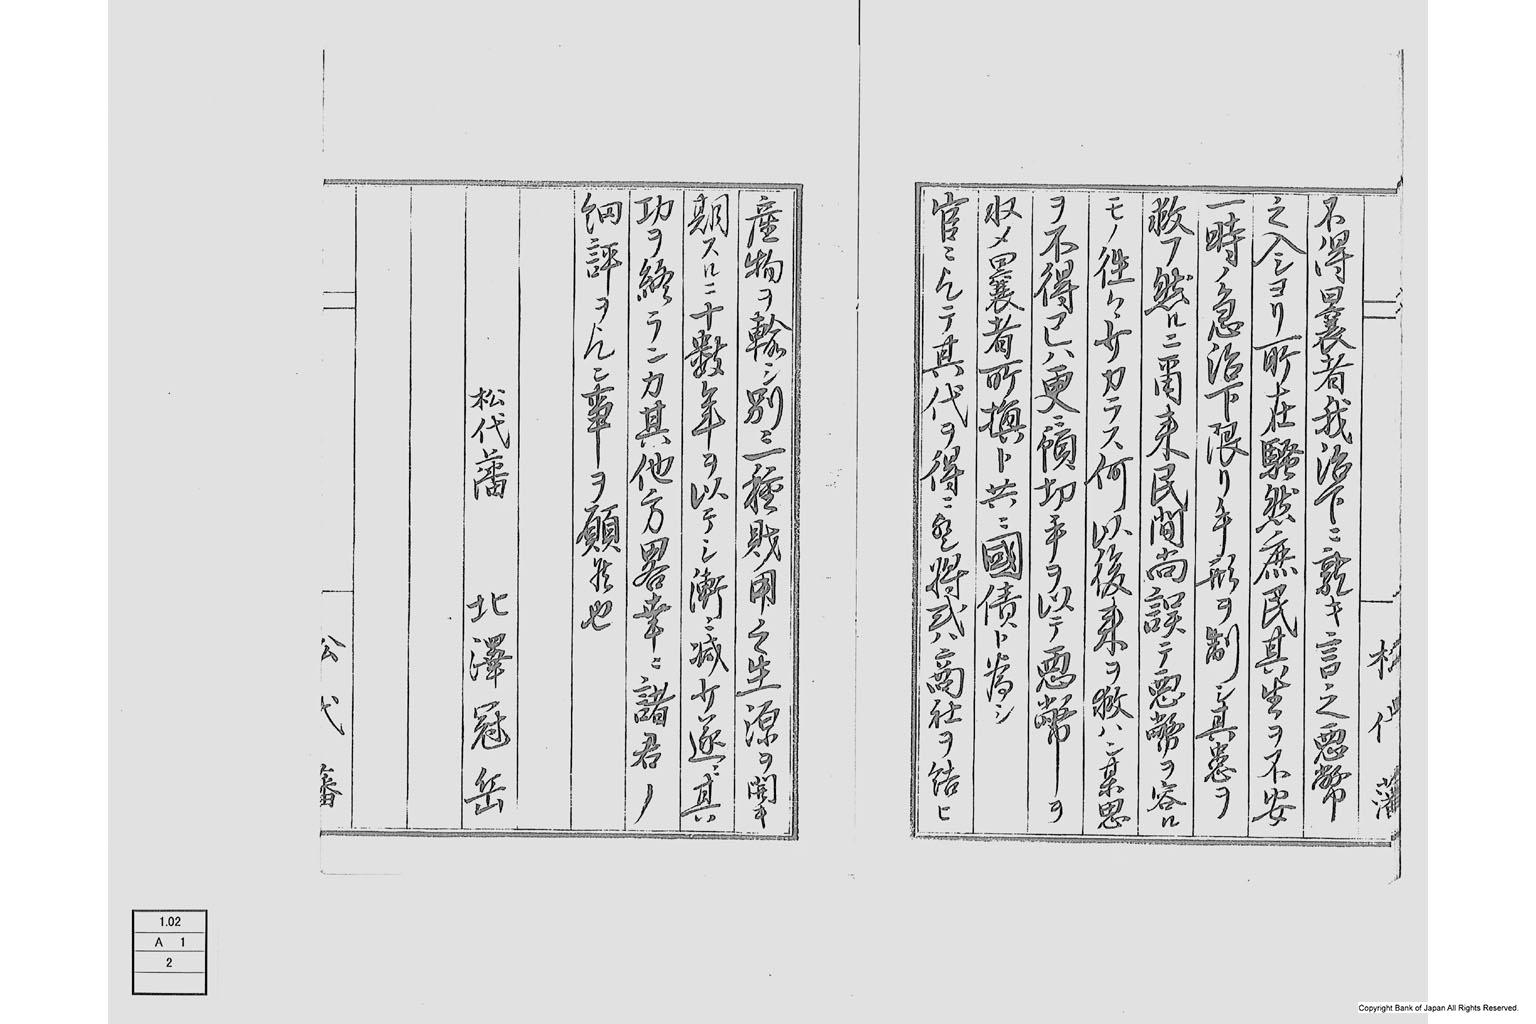 松代藩
不得曩者我治下ニ乾キ言之悪幣
之入シヨリ所在騒然庶民其生ヲ不安
一時ノ急治下限リ手形ヲ制シ其患ヲ
救フ然ルニ爾来民間尚誤テ悪幣ヲ容ルヽ
モノ往々少カラス何以後来ヲ救ハン某思
ヲ不得已ハ更ニ償切手ヲ以テ悪幣ヲ
収メ曩者所換ト共ニ國債ト為シ
官ニ乞テ其代ヲ得ニ至将或ハ商社ヲ結ヒ
産物ヲ輸シ別ニ一種財用之生源ヲ開キ
期スルニ十数年ヲ以テシ漸ニ減少遂ニ其
功ヲ終ランカ其他方畧幸ニ諸君ノ
細評ヲ乞ン事ヲ願然也
松代藩 北澤冠岳
松代藩
1.02
A 1
2
Copyright Bank of Japan All Rights Reserved.